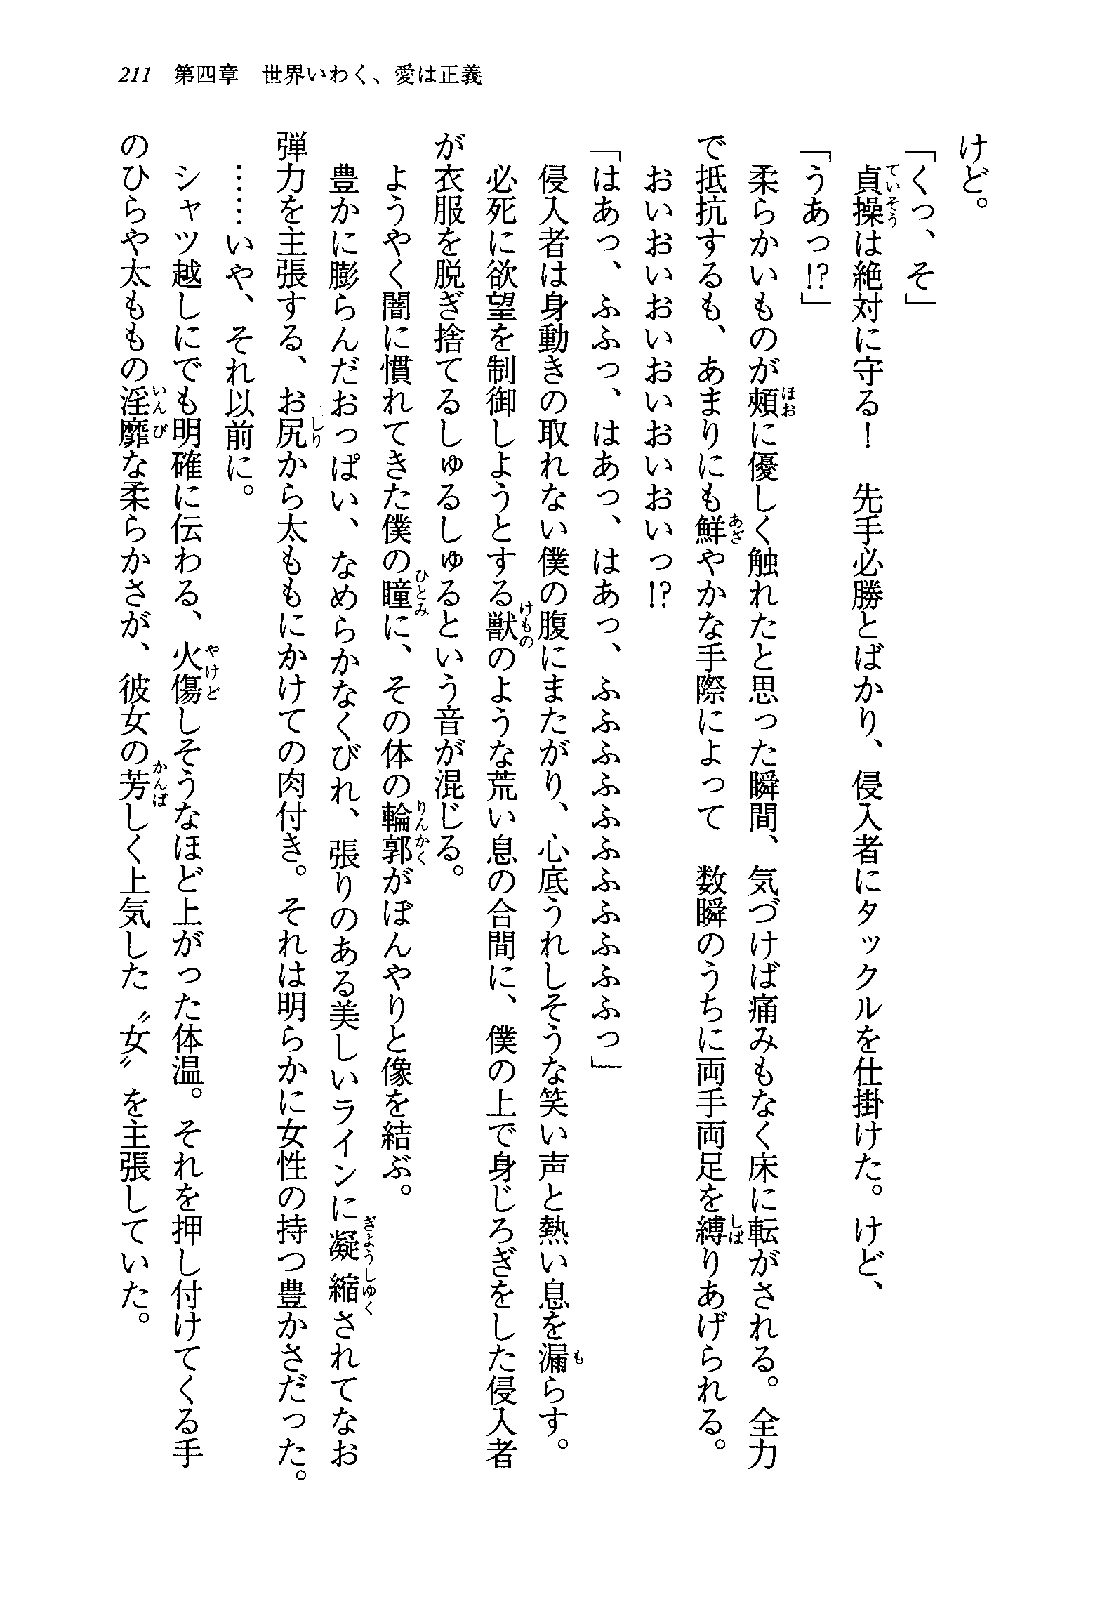 211　第四章　世界いわく、愛は正義
けど。
「くっ、そ」
　貞操は絶対に守る！　先手必勝とばかり、侵入者にタックルを仕掛けた。けど、
「うあっ!?」
　柔らかいものが頰に優しく触れたと思った瞬間、気づけば痛みもなく床に転がされる。全力
で抵抗するも、あまりにも鮮やかな手際によって　数瞬のうちに両手両足を縛りあげられる。
　おいおいおいおいおいおいっ!?
「はあっ、ふふっ、はあっ、はあっ、ふふふふふふふふふふふっ」
　侵入者は身動きの取れない僕の腹にまたがり、心底うれしそうな笑い声と熱い息を漏らす。
　必死に欲望を制御しようとする獣のような荒い息の合間に、僕の上で身じろぎをした侵入者
が衣服を脱ぎ捨てるしゅるしゅるという音が混じる。
　ようやく闇に慣れてきた僕の瞳に、その体の輪郭がぼんやりと像を結ぶ。
　豊かに膨らんだおっぱい、なめらかなくびれ、張りのある美しいラインに凝縮されてなお
弾力を主張する、お尻から太ももにかけての肉付き。それは明らかに女性の持つ豊かさだった。
　……いや、それ以前に。
　シャツ越しにでも明確に伝わる、火傷しそうなほど上がった体温。それを押し付けてくる手
のひらや太ももの淫靡な柔らかさが、彼女の芳しく上気した〝女〟を主張していた。